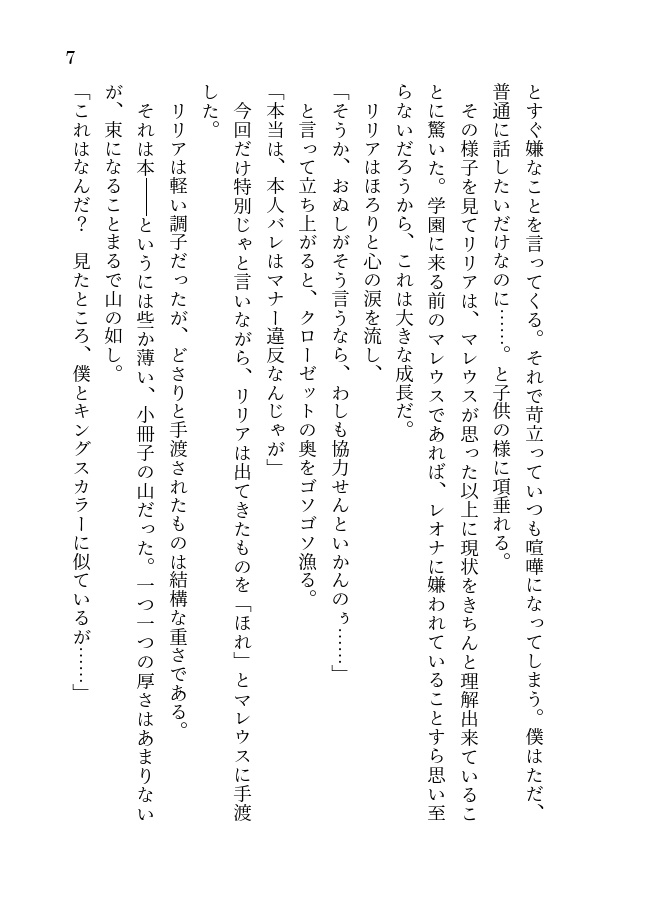 7
とすぐ嫌なことを言ってくる。それで苛立っていつも喧嘩になってしまう。僕はただ、
普通に話したいだけなのに……。と子供の様に項垂れる。
　その様子を見てリリアは、マレウスが思った以上に現状をきちんと理解出来ているこ
とに驚いた。学園に来る前のマレウスであれば、レオナに嫌われていることすら思い至
らないだろうから、これは大きな成長だ。
　リリアはほろりと心の涙を流し、
「そうか、おぬしがそう言うなら、わしも協力せんといかんのぅ……」
　と言って立ち上がると、クローゼットの奥をゴソゴソ漁る。
「本当は、本人バレはマナー違反なんじゃが」
　今回だけ特別じゃと言いながら、リリアは出てきたものを「ほれ」とマレウスに手渡
した。
　リリアは軽い調子だったが、どさりと手渡されたものは結構な重さである。
　それは本――というには些か薄い、小冊子の山だった。一つ一つの厚さはあまりない
が、束になることまるで山の如し。
「これはなんだ？　見たところ、僕とキングスカラーに似ているが……」